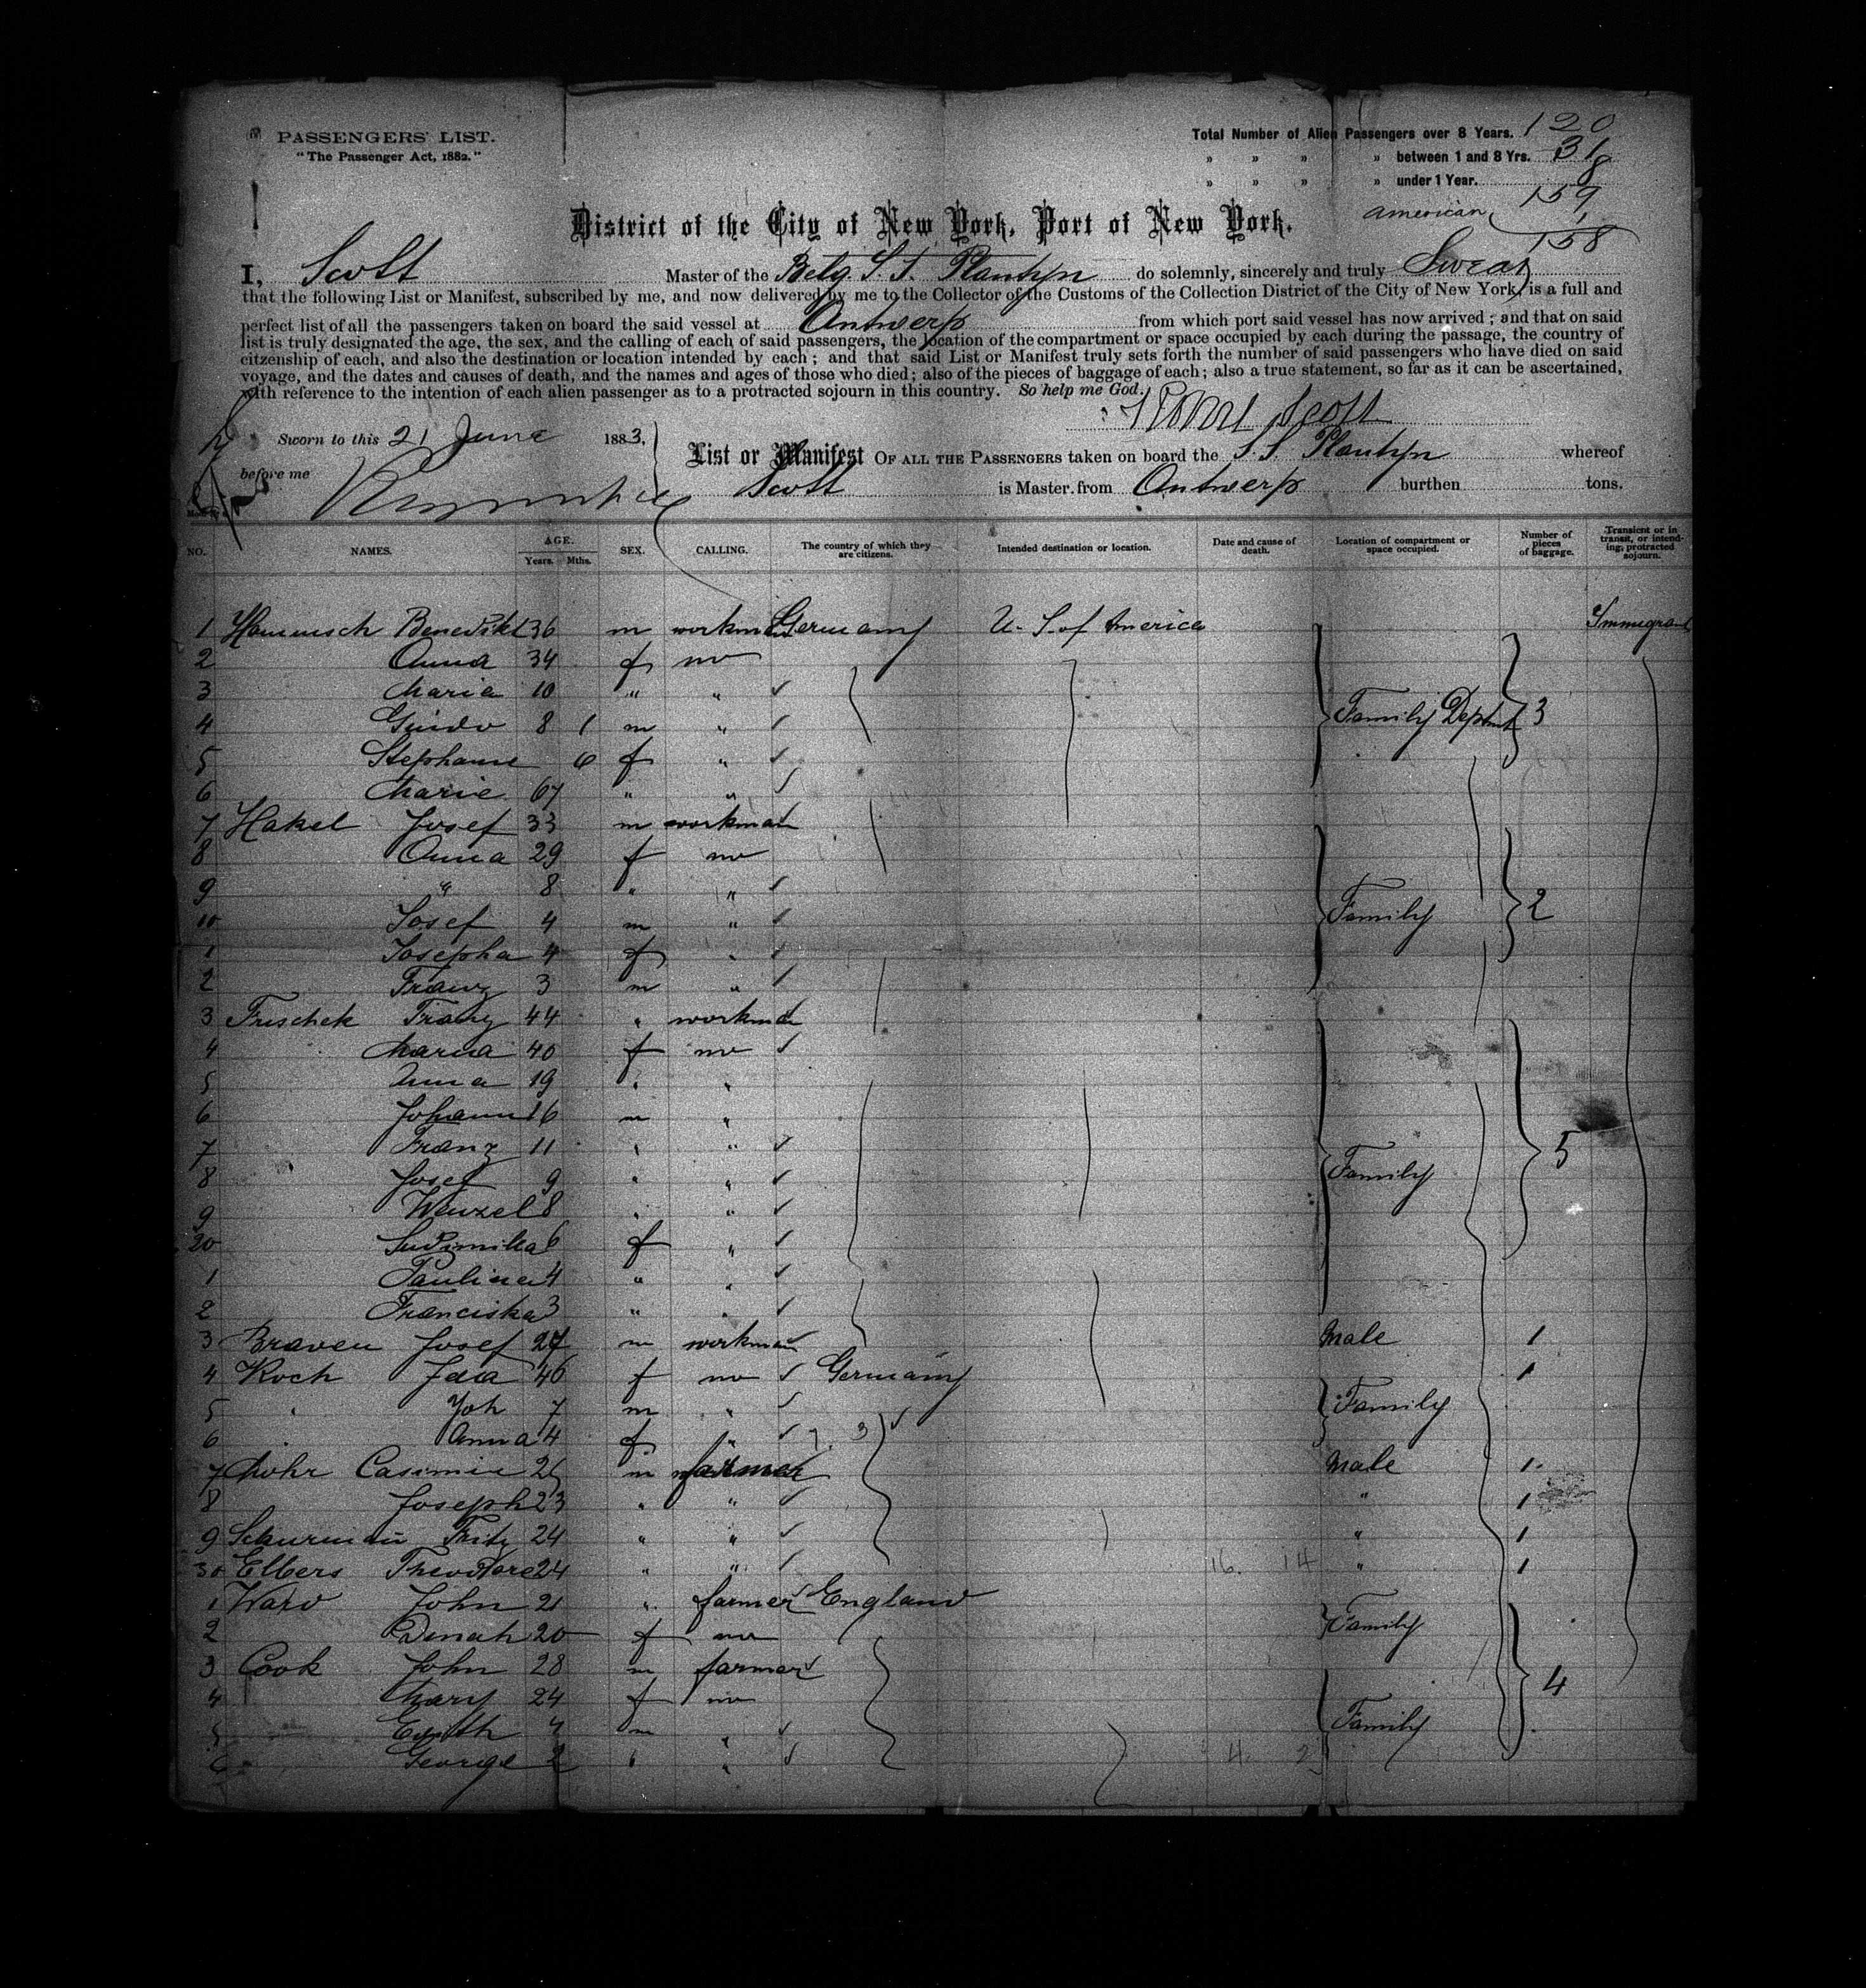 PASSENGERS' LIST.
"The Passenger Act, 1882."
Total Number of Alien Passengers over 8 Years. 120
" " " " between 1 and 8 Yrs. 31
" " " " under 1 Year. 8
159
american 1
158
District of the City of New York, Port of New York.
I, Scott Master of the Belg. S. S. Plantyn do solemnly, sincerely and truly Swear
that the following List or Manifest, subscribed by me, and now delivered by me to the Collector of the Customs of the Collection District of the City of New York, is a full and
perfect list of all the passengers taken on board the said vessel at Antwerp from which port said vessel has now arrived; and that on said
list is truly designated the age, the sex, and the calling of each of said passengers, the location of the compartment or space occupied by each during the passage, the country of
citzenship of each, and also the destination or location intended by each; and that said List or Manifest truly sets forth the number of said passengers who have died on said
voyage, and the dates and causes of death, and the names and ages of those who died; also of the pieces of baggage of each; also a true statement, so far as it can be ascertained,
with reference to the intention of each alien passenger as to a protracted sojourn in this country. So help me God.
Robert Scott
Sworn to this 21 June 1883,
before me
List or Manifest OF ALL THE PASSENGERS taken on board the S. S. Plantyn whereof
Scott is Master, from Antwerp burthen tons.
NO. NAMES. AGE. Years. Mths. SEX. CALLING. The country of which they are citizens. Intended destination or location. Date and cause of death. Location of compartment or space occupied. Number of pieces of baggage. Transient or in transit, or intending protracted sojourn.
1 Hamensch Benedikt 36 m workman Germany U. S. of America Immigrant
2 Anna 34 f no
3 Maria 10 " "
4 Guido 8 1 m " Family Deptmt 3
5 Stephanie 6 f "
6 Marie 67 " "
7 Hakel Josef 33 m workman
8 Anna 29 f no
9 " 8 " "
10 Josef 4 m " Family 2
1 Josepha 4 f "
2 Franz 3 m "
3 Frischek Franz 44 " workman
4 Maria 40 f no
5 Anna 19 " "
6 Johann 16 m "
7 Franz 11 " " 5
8 Josef 9 " " Family
9 Wenzel 8 " "
20 Ludimilla 6 f "
1 Paulina 4 " "
2 Franciska 3 " "
3 Braven Josef 27 m workman Male 1
4 Koch Ida 46 f no Germany 1
5 " Joh 7 m " Family
6 " Anna 4 f " 7. 3
7 Mohr Casimir 26 m farmer Male 1
8 Joseph 23 " " " 1
9 Schurmann Fritz 24 " " " 1
30 Elbers Theodore 24 " " 16. 14 " 1
1 Ward John 21 " farmer England
2 Dinah 20 f no Family
3 Cook John 28 m farmer
4 Mary 24 f no 4
5 Edith 4 m " Family
6 George 2 " " 4. 2